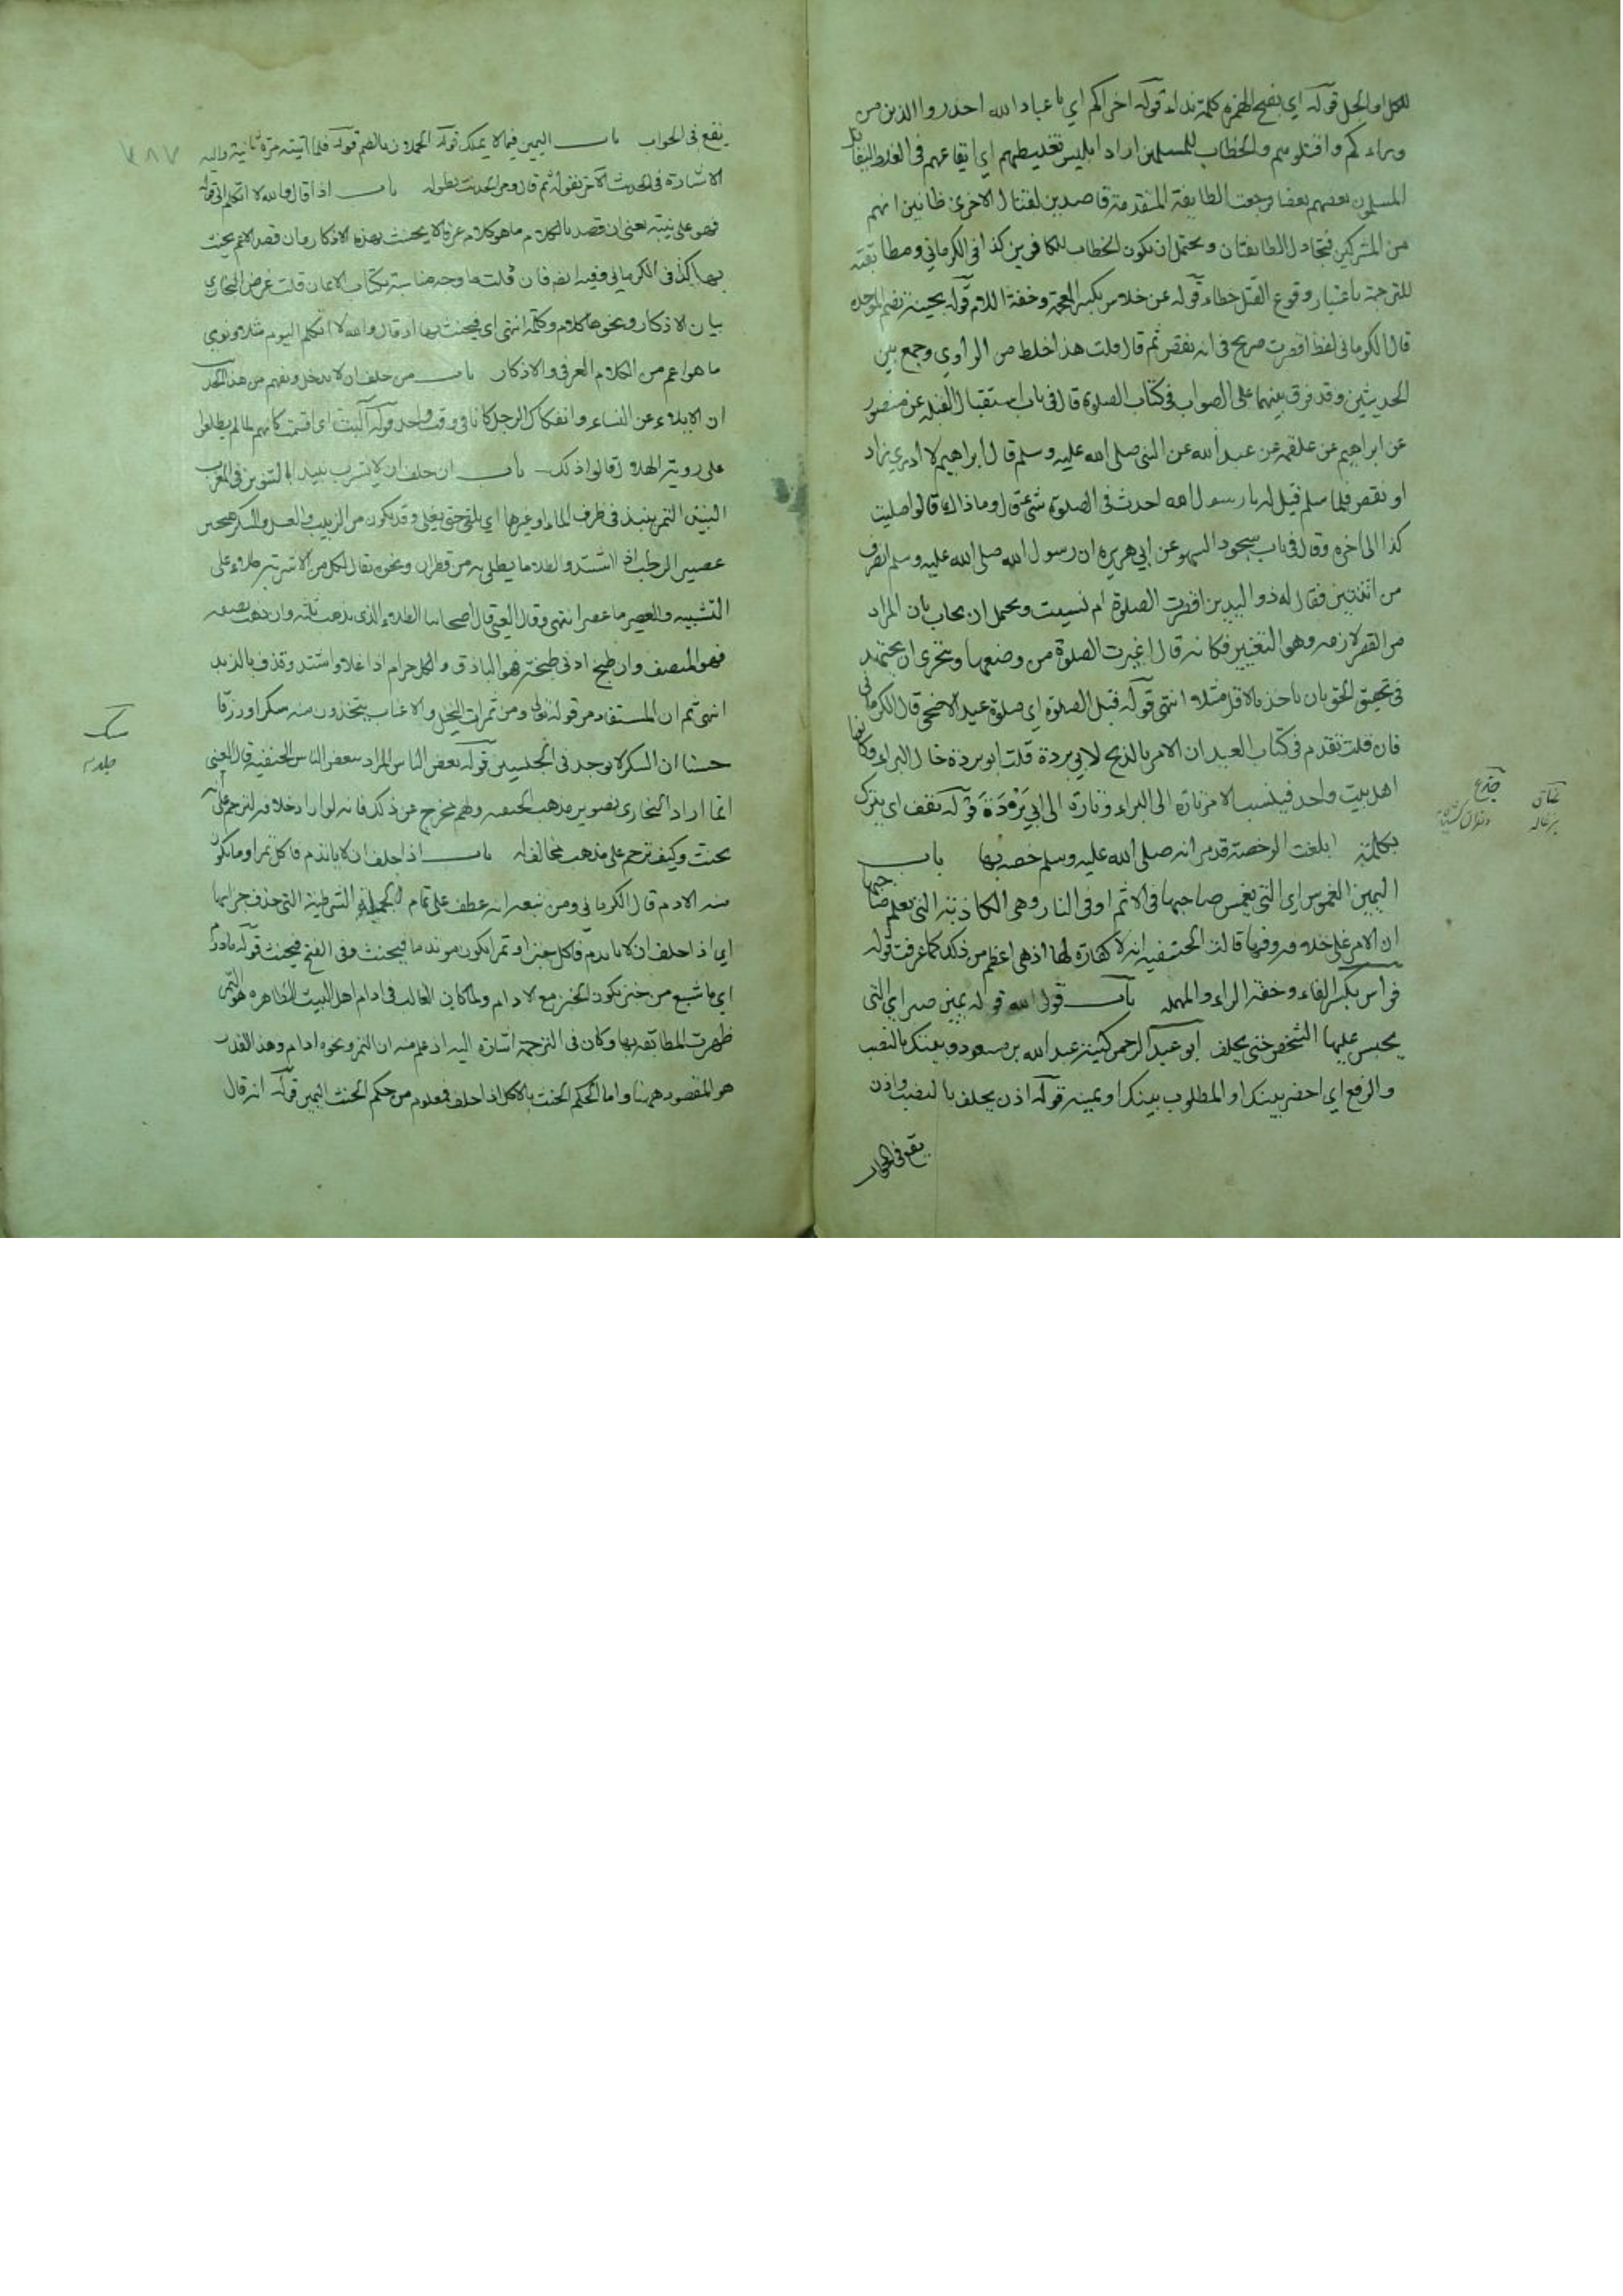 للكل او الجل قوله اي بفتح الهمزة كلمة نداء قوله اخراكم اي يا عباد الله احذروا الذين من
وراءكم واقتلوهم والخطاب للمسلمين اراد ابليس تغليطهم اي ايقاعهم في الغلط ليقاتل
المسلمون بعضهم بعضا فرجعت الطايفة المتقدمة قاصدين لقتال الاخرى ظانين انهم
من المشركين فتجادل الطايفتان ويحتمل ان يكون الخطاب للكافرين كذا في الكرماني ومطابقته
للترجمة باعتبار وقوع القتل خطاء قوله عن خلاس بكسر المعجمة وخفة اللام قوله بحينة بضم الموحدة
قال الكرماني لفظ اقصرت صريح في انه نقص ثم قال قلت هذا خلط من الراوي وجمع بين
الحديثين وقد فرق بينهما على الصواب في كتاب الصلوة قال في باب استقبال القبلة عن منصور
عن ابراهيم عن علقمة عن عبد الله عن النبي صلى الله عليه وسلم قال ابراهيم لا ادري زاد
او نقص فلما سلم قيل له يا رسول الله احدث في الصلوة شئ قال وما ذاك قالوا صليت
كذا الى اخره وقال في باب سجود السهو عن ابي هريرة ان رسول الله صلى الله عليه وسلم انصرف
من اثنتين فقال له ذو اليدين اقصرت الصلوة ام نسيت ويحتمل ان يجاب بان المراد
من القصر لازمه وهو التغيير فكانه قال اغيرت الصلوة من وضعها ويتحرى ان يجتهد
في تحقيق الحق بان ياخذ بالاقل مثلا انتهى قوله قبل الصلوة اي صلوة عيد الاضحى قال الكرماني
فان قلت تقدم في كتاب العيد ان الامر بالذبح لابي بردة قلت ابو بردة خال البراء وكانوا
اهل بيت واحد فينسب الامر تارة الى البراء وتارة الى ابي بردة قوله تقف اي يترك
تكلمته ابلغت الرخصة قد مر انه صلى الله عليه وسلم خصه بها باب
اليمين الغموس اي التي يغمس صاحبها في الاثم او في النار وهي الكاذبة التي يعلم صاحبها
ان الامر على خلافه وفيها قالت الحنفية انه لا كفارة لها اذ هي اعظم من ذلك كما عرفت قوله
فراس بكسر الفاء وخفة الراء والمهملة باب قول الله قوله يمين صبر اي التي
يحبس عليها الشخص حتى يحلف ابو عبد الرحمن كنية عبد الله بن مسعود وبينتك بالنصب
والرفع اي احضر بينتك او المطلوب بينتك او يمينه قوله اذن يحلف بالنصب واذن
يقع في الجواب
جذع
عناق
بزغاله
يقع في الجواب باب اليمين فيما لا يملك قوله الحملان بالضم قوله فلما اتيته مرة ثانية واليه
الاشارة في الحديث الآخر بقوله ثم قال ومر الحديث بطوله باب اذا قال والله لا اتكلم الى قوله
فهو على نيته يعني ان قصد بالكلام ما هو كلام عرفا لا يحنث بهذه الاذكار وان قصد الاعم يحنث
بها كذا في الكرماني وفيه ايضا فان قلت ما وجه مناسبته بكتاب الايمان قلت غرض البخاري
بيان الاذكار ونحوها كلام وكلمة انتهى اي فيحنث بها اذ قال والله لا اتكلم اليوم مثلا ونوى
ما هو اعم من الكلام العرفي والاذكار باب من حلف ان لا يدخل ويفهم من هذا الحديث
ان الايلاء عن النساء وانفكاك الرجل كانا في وقت واحد قوله آليت اي اقسمت كانهم ما لم يطلعوا
على روية الهلال قالوا ذلك باب ان حلف ان لا يشرب نبيذا بالتنوين في المغرب
النبيذ التمر ينبذ في ظرف الماء او غيرها اي يلقى حتى يغلي وقد يكون من الزبيب والعسل والسكر هو
عصير الرطب اذا اشتد والطلاء ما يطلى به من قطران ونحوه يقال لكل من الاشربة طلاء على
التشبيه والعصير ما عصر انتهى وقال العيني قال اصحابنا الطلاء الذي يذهب ثلثه وان ذهب نصفه
فهو المنصف وان طبخ ادنى طبخة فهو الباذق والكل حرام اذا غلا واشتد وقذف بالزبد
انتهى ثم ان المستفاد من قوله تعالى ومن ثمرات النخيل والاعناب تتخذون منه سكرا ورزقا
حسنا ان السكر لا يوجد في الجنسين قوله بعض الناس المراد ببعض الناس الحنفية قال العيني
انما اراد البخاري تصوير مذهب الحنفية ولم يخرج عن ذلك فانه لو اراد خلافه لترجم على انه
يحنث وكيف ترجم على مذهب مخالف له باب اذا حلف ان لا ياتدم فاكل تمرا وما يكون
منه الادم قال الكرماني ومن تبعه انه عطف على تمام الجملة الشرطية التي حذف جزاؤها
اي اذا حلف ان لا ياتدم فاكل خبزا وتمرا يكون موتدما فيحنث وفي الفتح فيحنث قوله مادوم
اي ما شبع من خبز يكون الخبز مع الادام ولما كان الغالب في ادام اهل البيت الظاهرة هو التمر
ظهرت المطابقة بها وكان في الترجمة اشارة اليه اذ علم منه ان التمر ونحوه ادام وهذا القدر
هو المقصود ههنا واما الحكم الحنث بالاكل اذا حلف فمعلوم من حكم الحنث اليمين قوله انه قال